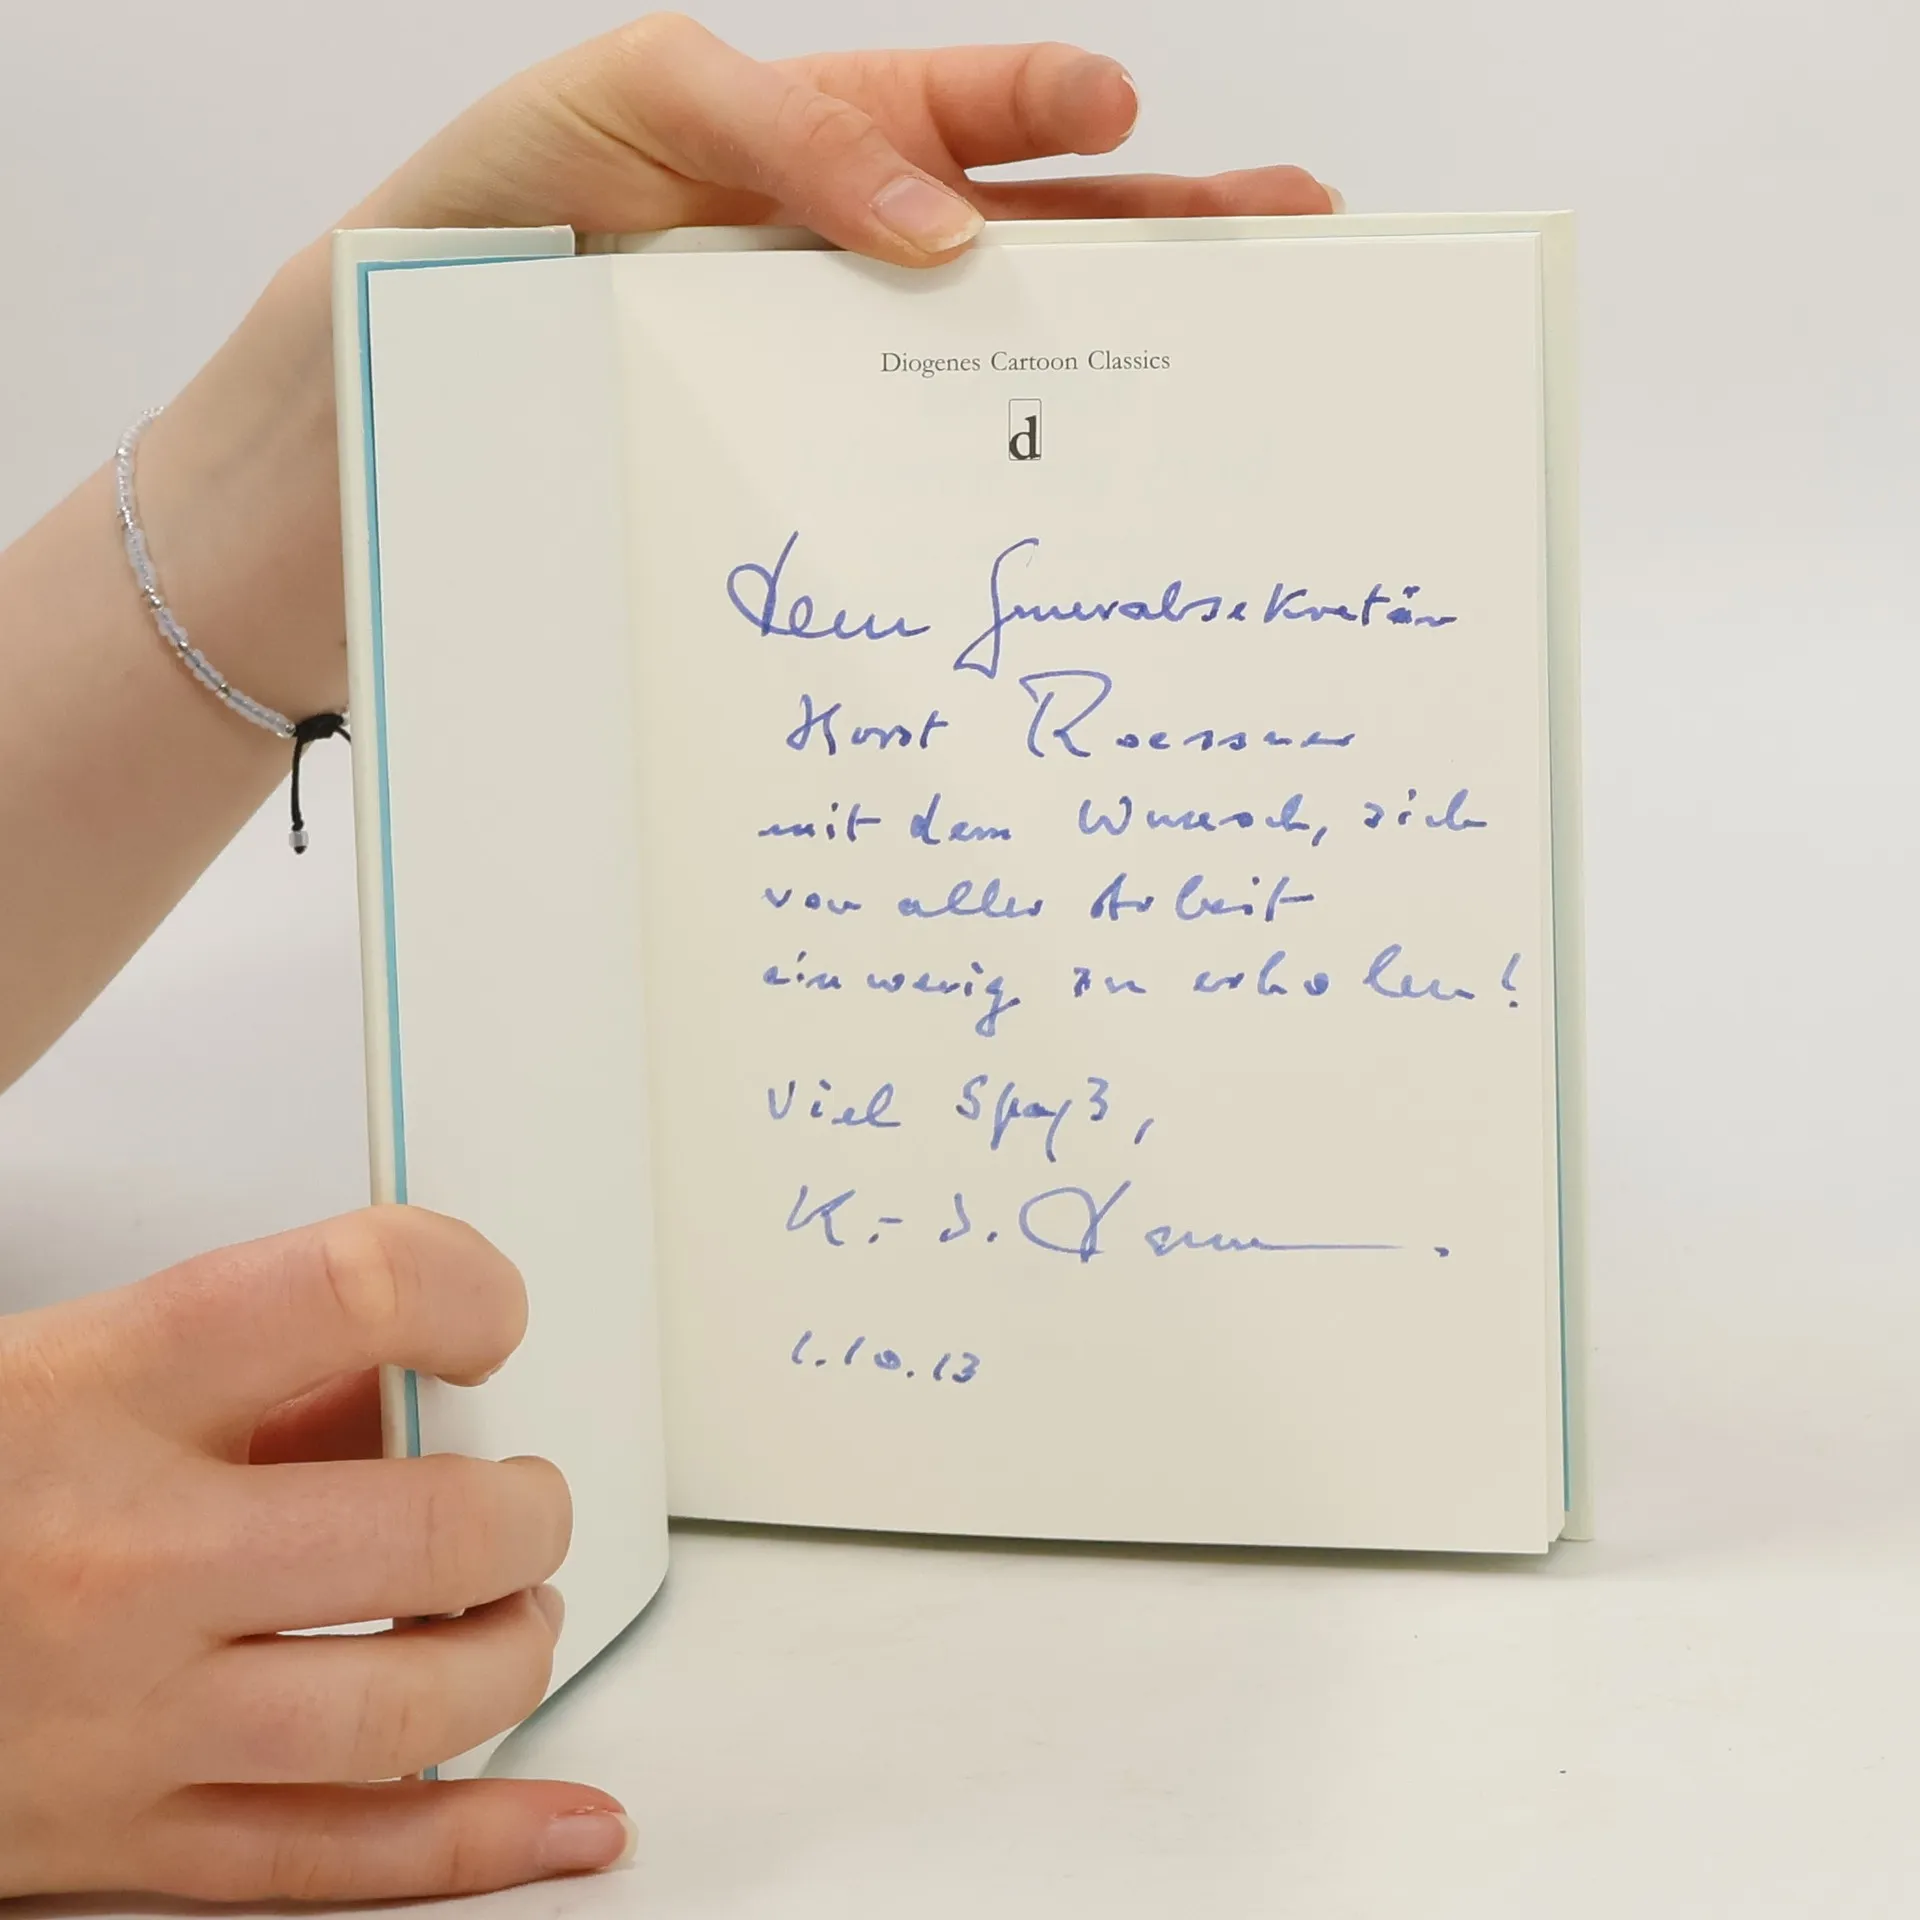 Diogenes Cartoon Classics
d
Dem Generalsekretär
Horst Roessner
mit dem Wunsch, sich
von aller Arbeit
ein wenig zu erholen!
Viel Spaß,
K.-J.
1.10.13